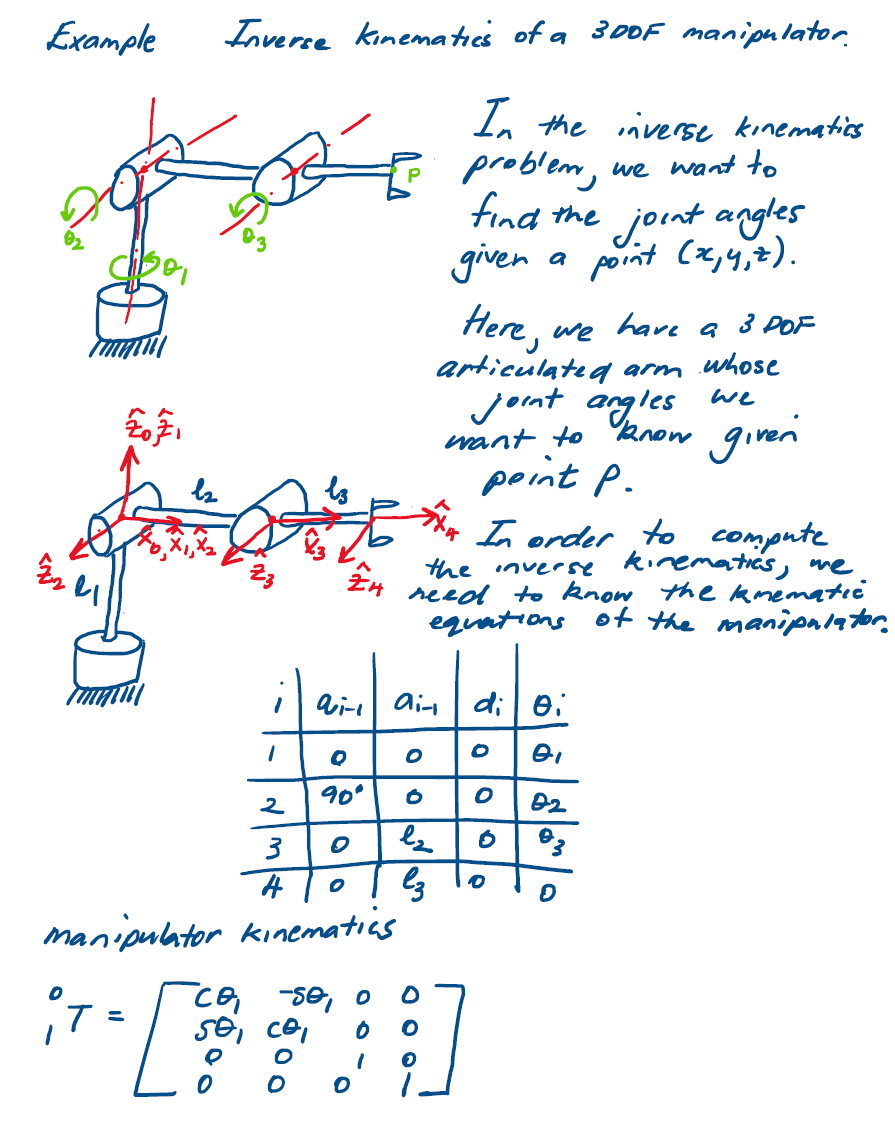 Example Inverse kinematics of a 3DOF manipulator.
In the inverse kinematics
problem, we want to
find the joint angles
given a point (x,y,z).
P
θ2
θ3
θ1
Here, we have a 3 DOF
articulated arm whose
joint angles we
want to know given
point P.
ẑ0, ẑ1
l2
l3
x̂0, x̂1, x̂2
x̂3
x̂4
ẑ2
ẑ3
ẑ4
l1
In order to compute
the inverse kinematics, we
need to know the kinematic
equations of the manipulator.
i ai-1 ai-1 di θi
1 0 0 0 θ1
2 90° 0 0 θ2
3 0 l2 0 θ3
4 0 l3 0 0
manipulator kinematics
0 1 T = [ cθ1 -sθ1 0 0
sθ1 cθ1 0 0
0 0 1 0
0 0 0 1 ]